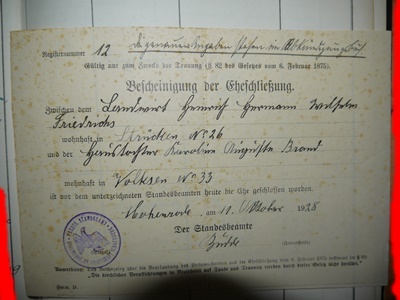 Registernummer 12 die genauen Angaben stehen im
Gültig nur zum Zwecke der Trauung (§ 82 des Gesetzes vom 6. Februar 1875).
Bescheinigung der Eheschließung.
Zwischen dem Landwirt Heinrich Hermann Wilhelm
Friedrichs
wohnhaft in Strücken No 26
und der Haustochter Karoline Auguste Brand
wohnhaft in Volksen No 33
ist vor dem unterzeichneten Standesbeamten heute die Ehe geschlossen worden.
Hohenrode, am 11. Oktober 1928
Der Standesbeamte
Budde
(Unterschrift)